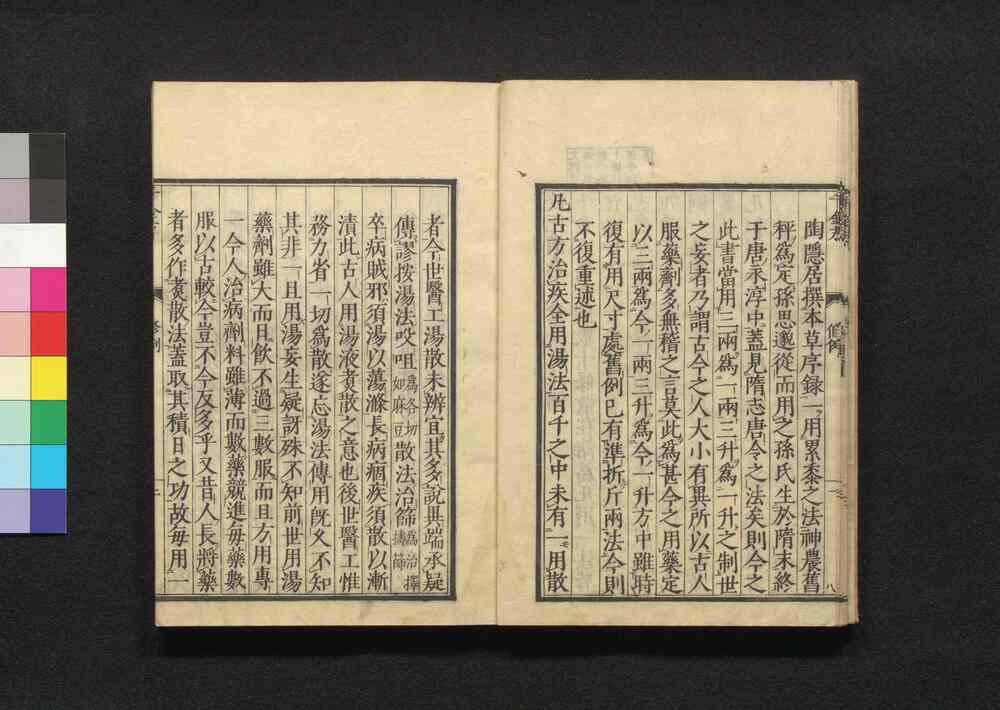 陶隱居撰本草序錄一用累黍之法神農舊
秤爲定孫思邈從而用之孫氏生於隋末終
于唐永淳中蓋見隋志唐令之法矣則今之
此書當用三兩爲一兩三升爲一升之制世
之妄者乃謂古今之人大小有異所以古人
服藥劑多無稽之言莫此爲甚今之用藥定
以三兩爲今一兩三升爲今一升方中雖時
復有用尺寸處舊例已有準折斤兩法今則
不復重述也
凡古方治疾全用湯法百千之中未有一用散
者今世醫工湯散未辨宜其多說異端承疑
傳謬按湯法㕮咀爲各切如麻豆散法治篩爲治擇擣篩
卒病賊邪須湯以蕩滌長病痼疾須散以漸
漬此古人用湯液煑散之意也後世醫工惟
務力省一切爲散遂忘湯法傳用旣久不知
其非一旦用湯妄生疑訝殊不知前世用湯
藥劑雖大而且飲不過三數服而且方用專
一今人治病劑料雖薄而數藥競進每藥數
服以古較今豈不今反多乎又昔人長將藥
者多作煑散法蓋取其積日之功故每用一